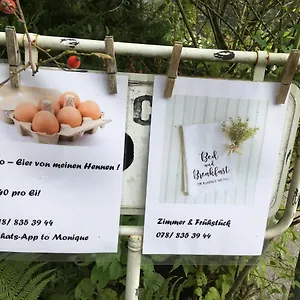 o – Eier von meinen Hennen !
40 pro Ei!
8/ 835 39 44
hats-App to Monique
Bed
and
Breakfast
Zimmer & Frühstück
078/ 835 39 44